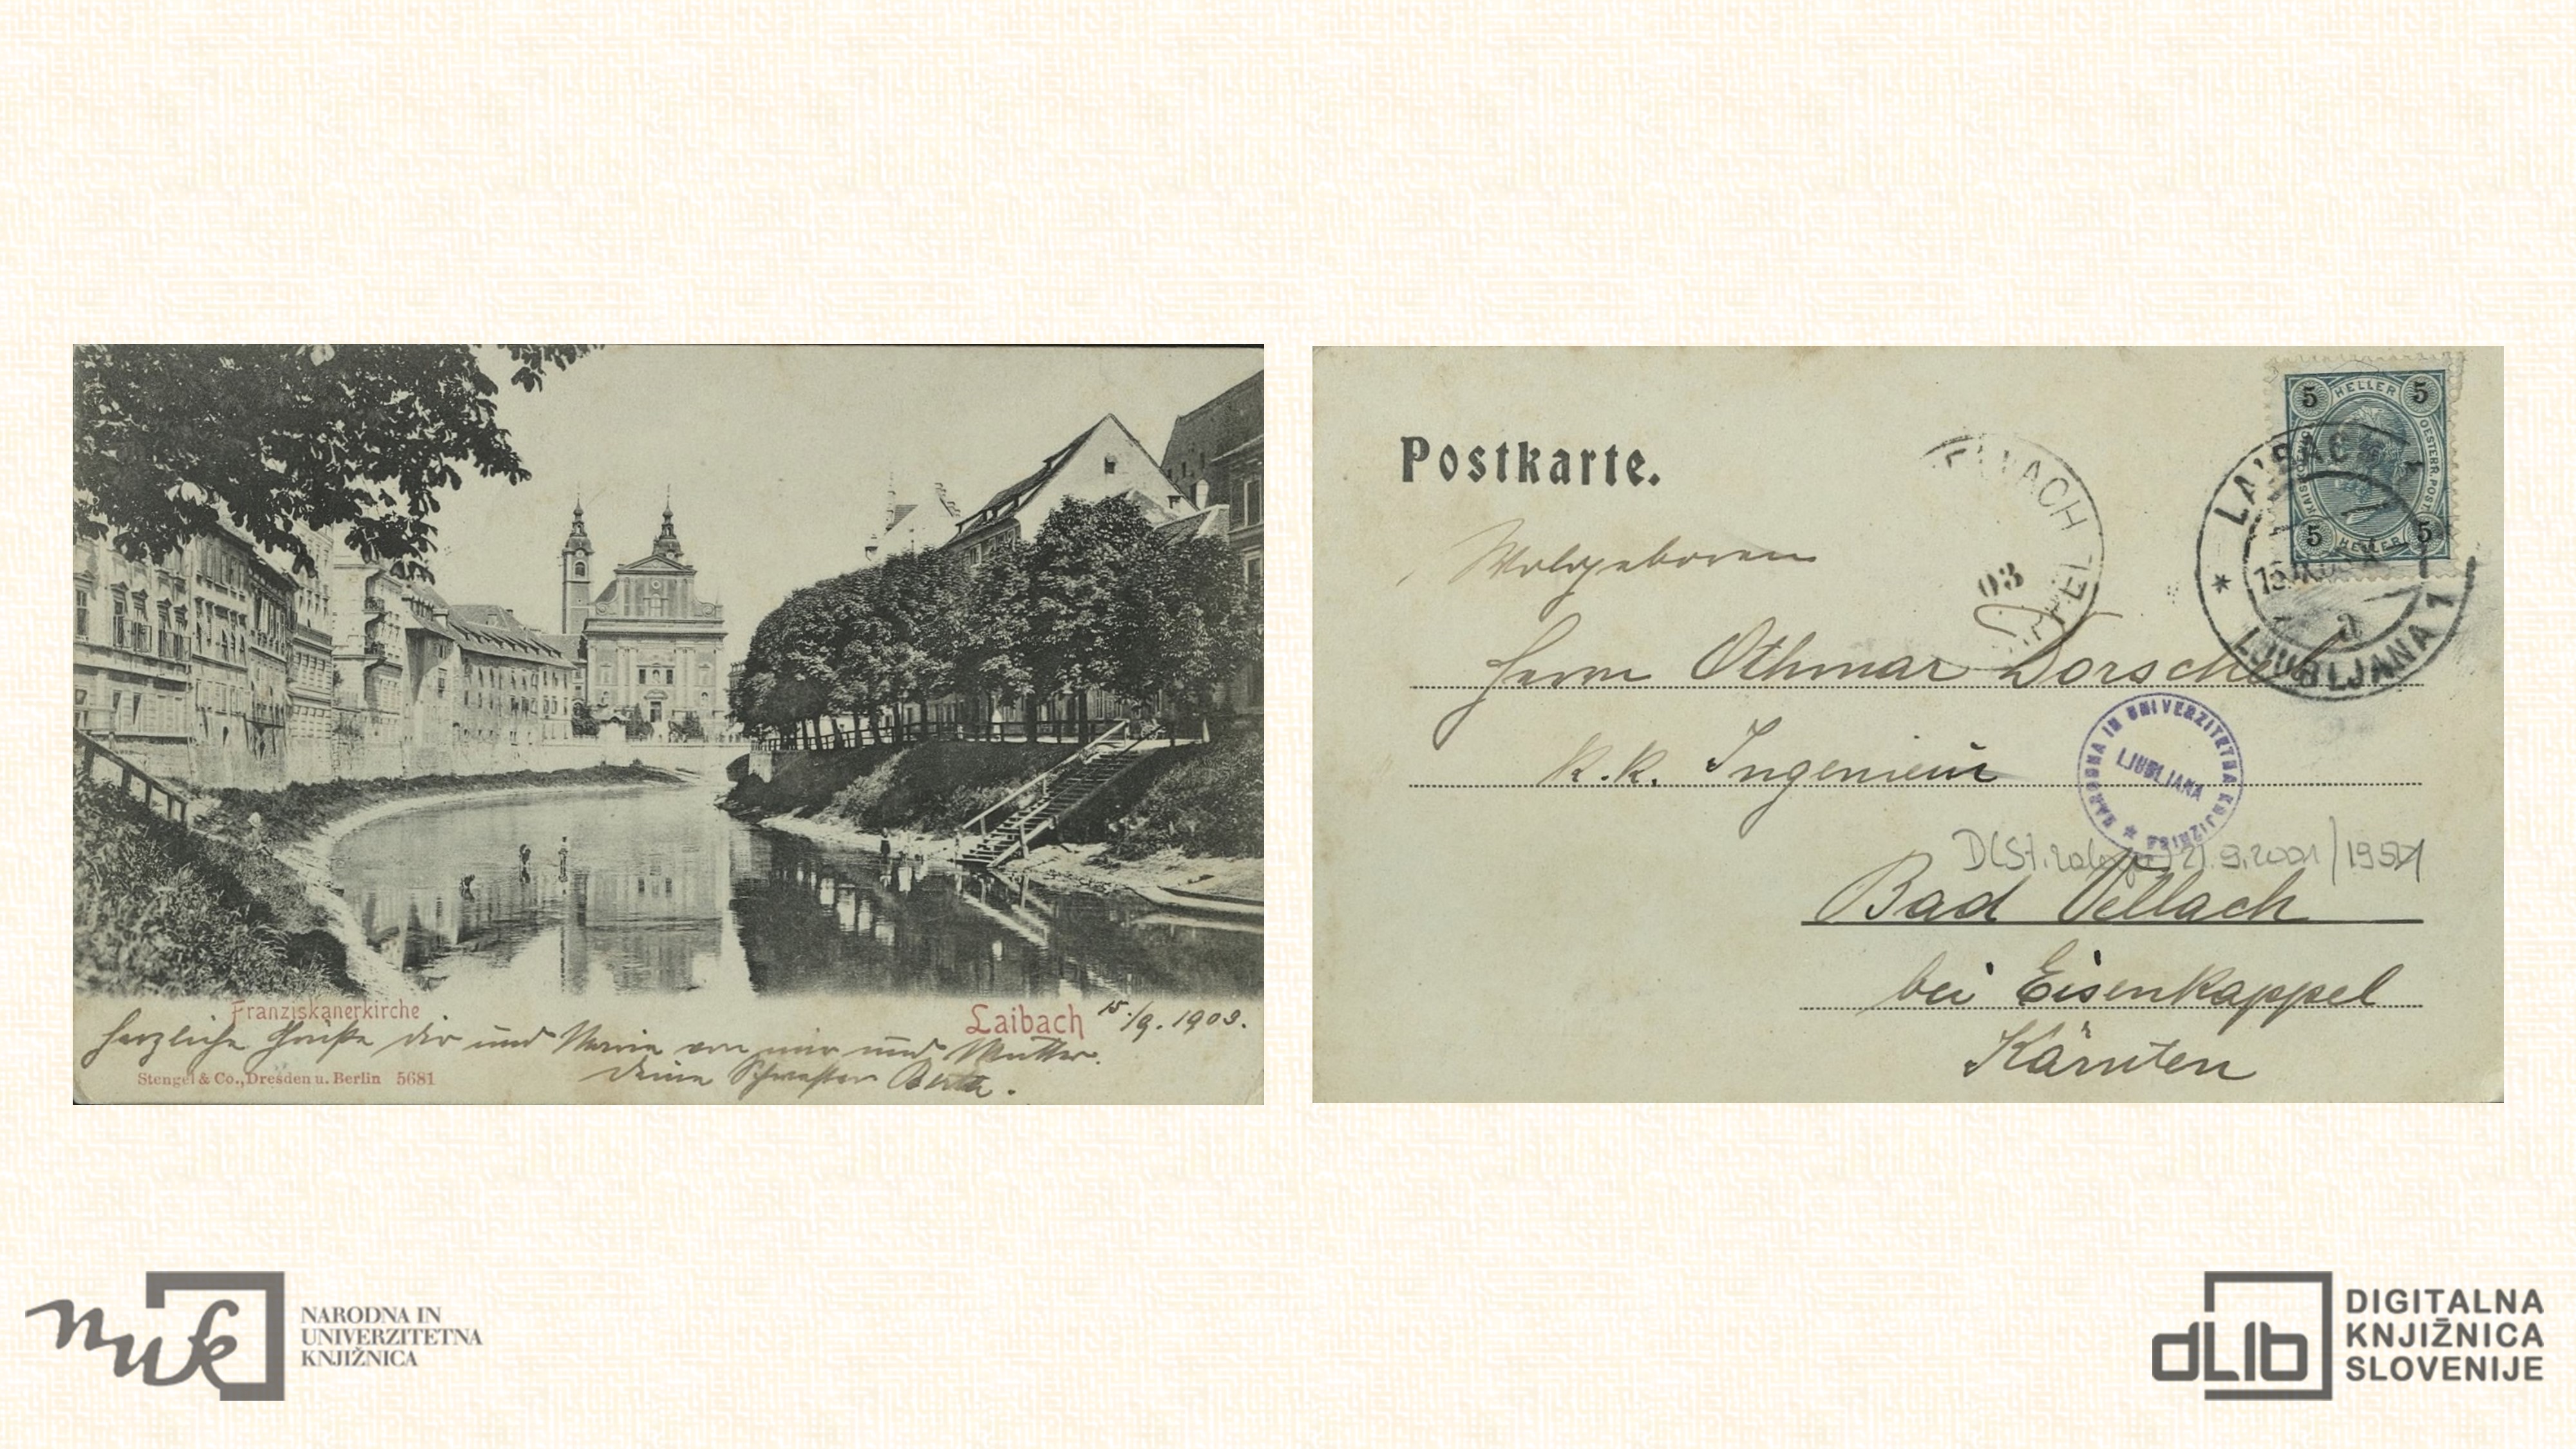 Franziskanerkirche
Laibach 15./9. 1903.
Herzliche Grüße dir und Maria von mir und Mutter.
deine Schwester Berta.
Stengel & Co., Dresden u. Berlin 5681
Postkarte.
5 HELLER 5
KAIS. KOENIGL. OESTERR. POST
5 HELLER 5
LAIBACH 1
LJUBLJANA 1
03
Wolgeboren
Herrn Othmar Dorschel
k. k. Ingenieur
NARODNA IN UNIVERZITETNA KNJIŽNICA
LJUBLJANA
21.9.2001/1951
Bad Vellach
bei Eisenkappel
Kärnten
nuk
NARODNA IN
UNIVERZITETNA
KNJIŽNICA
dLib
DIGITALNA
KNJIŽNICA
SLOVENIJE